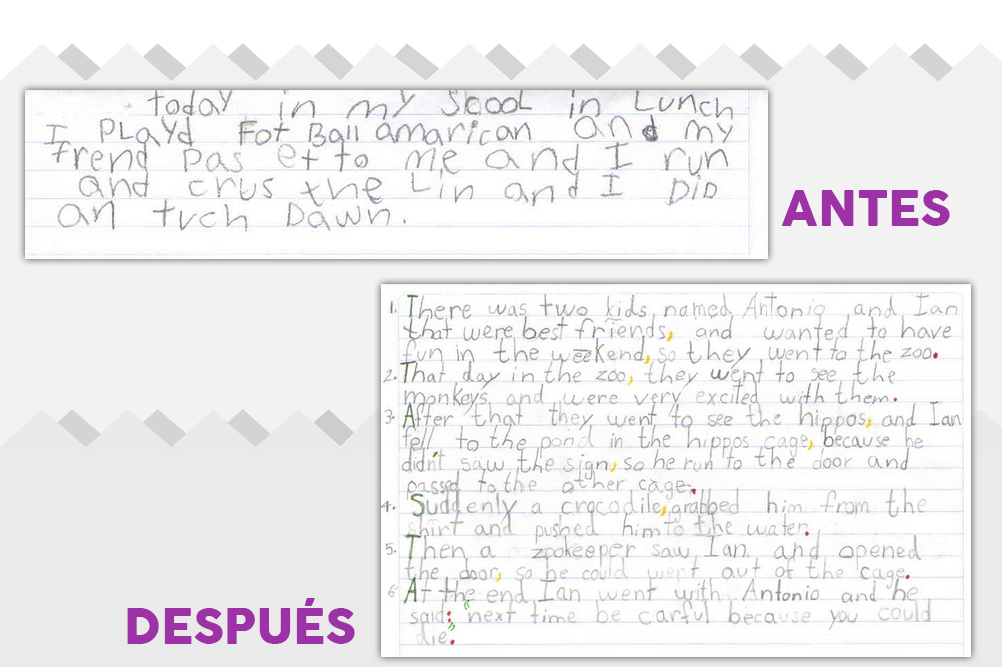 today in my Scool in Lunch
I PLayd Fot Ball amarican and my
frend pas et to me and I run
and crus the Lin and I DiD
an tuch Dawn.
ANTES
1. There was two kids named Antonio and Ian
that were best friends, and wanted to have
fun in the weekend, so they went to the zoo.
2. That day in the zoo, they went to see the
monkeys and were very excited with them.
3. After that they went to see the hippos, and Ian
fell to the pond in the hippos cage, because he
didn't saw the sign, so he run to the door and
passed to the other cage.
4. Suddenly a crocodile, grabbed him from the
shirt and pushed him to the water.
5. Then a zookeeper saw Ian and opened
the door, so he could went out of the cage.
6. At the end Ian went with Antonio and he
said: "next time be carful because you could
die."
DESPUÉS